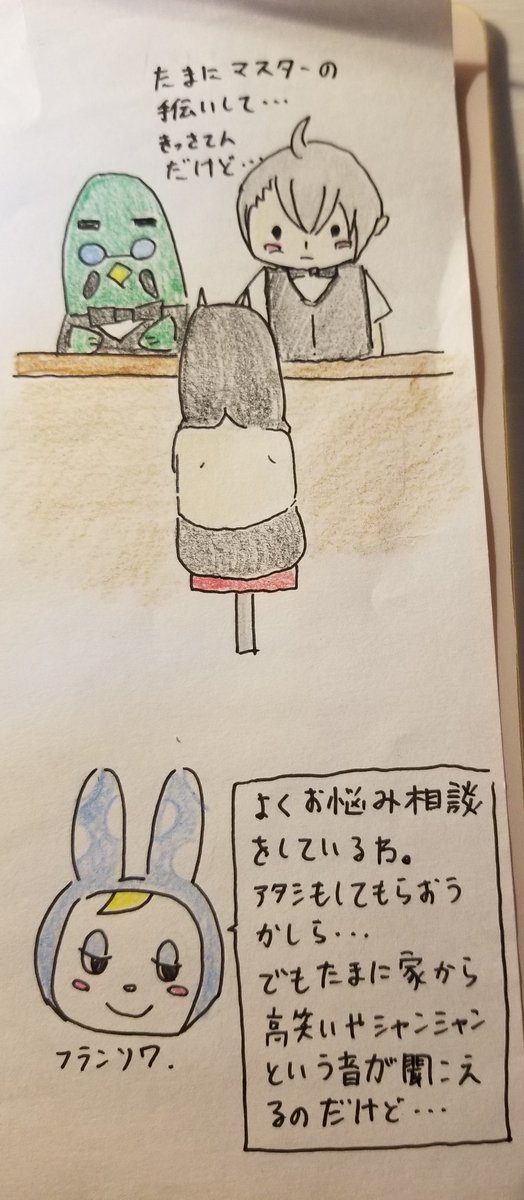 たまにマスターの
手伝いして・・・
きっさてん
だけど・・・
よくお悩み相談
をしているわ。
アタシもしてもらおう
かしら・・・
でもたまに家から
高笑いやシャンシャン
という音が聞こえ
るのだけど・・・
フランソワ.